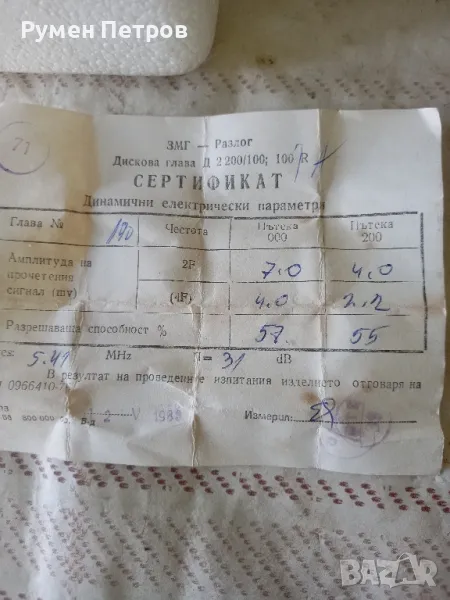 Румен Петров
71
ЗМГ — Разлог
Дискова глава Д 2 200/100; 100 R
СЕРТИФИКАТ
Динамични електрически параметри
Глава № 170 Честота Пътека 000 Пътека 200
Амплитуда на прочетения сигнал (mv) 2F 7.0 4.0
(4F) 4.0 2.2
Разрешаваща способност % 57 55
5.41 MHz = 31 dB
В резултат на проведените изпитания изделието отговаря на
0966410-
2 V 198
Измерил:
BAZAR